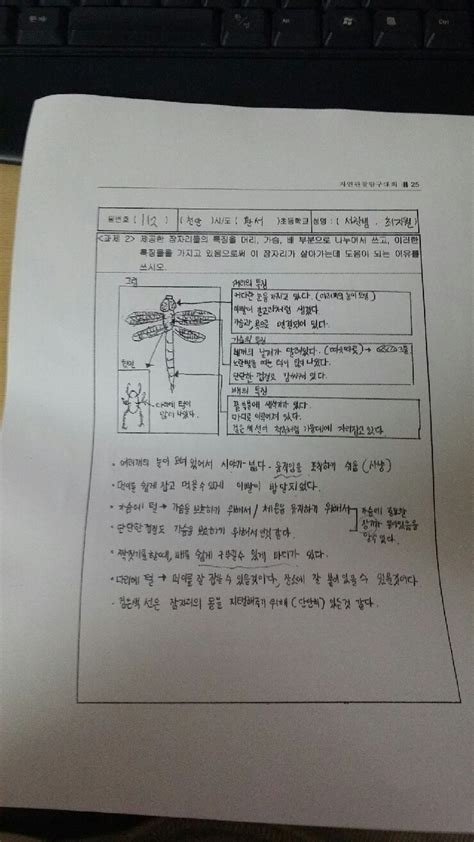 자연관찰탐구대회 ▮ 25
참번호 ( ) ( 천안 )시/도 ( 환서 )초등학교 성명 : (
<과제 2> 제공한 잠자리들의 특징을 머리, 가슴, 배 부분으로 나누어서 쓰고, 이러한
특징들을 가지고 있음으로써 이 잠자리가 살아가는데 도움이 되는 이유를
쓰시오.
그림
머리의 특징
커다란 눈을 가지고 있다. (여러개의 눈이 모임)
이빨이 갈고리처럼 생겼다
가슴과 목으로 연결되어 있다.
가슴의 특징
날개가 달려있다.
노란빛을 띠는 털이 많이 나있다.
단단한 껍질로 감싸져 있다.
배의 특징
끝쪽에 생식기가 있다.
마디로 이루어져 있다.
검은색 선이 척추처럼 가운데에 그려지고 있다.
다리에 털이
많이 나있다.
· 여러개의 눈이 모여 있어서 시야가 넓다 - 움직임을 포착하기 쉬움 (사냥)
· 먹이를 쉽게 잡고 먹을 수 있게 이빨이 발달되었다.
· 가슴에 털 → 가슴을 보호하기 위해서 / 체온을 유지하기 위해서
가슴에 중요한
장기가 들어있음을
알 수 있다.
· 단단한 껍질도 가슴을 보호하기 위해서인것 같다.
· 짝짓기를 할 때, 배를 쉽게 구부릴 수 있게 마디가 있다.
· 다리에 털 → 먹이를 잘 잡을 수 있을것이다, 장소에 잘 붙어 있을 수 있을것이다.
· 검은색 선은 잠자리의 몸을 지탱해주기 위해 (단단히) 있는것 같다.